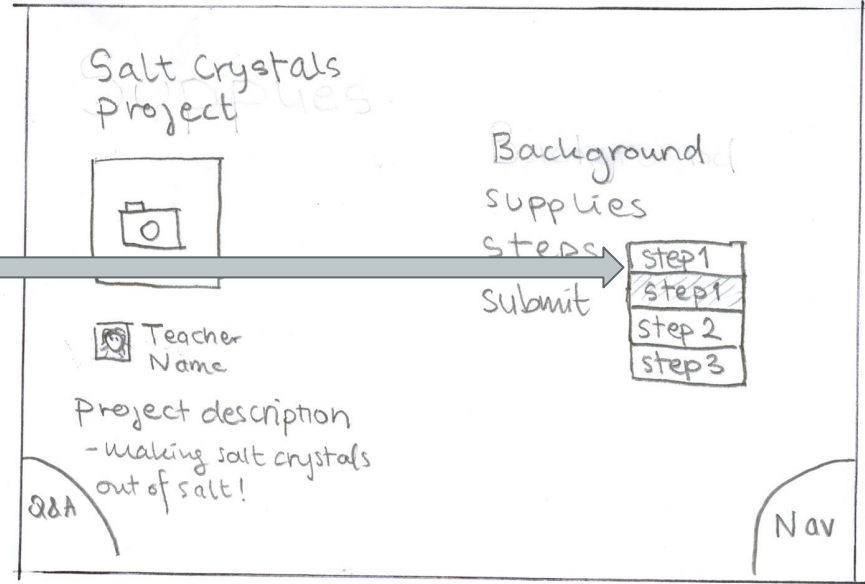 Salt Crystals
Project
Teacher
Name
Project description
- Making salt crystals
out of salt!
Q&A
Background
supplies
steps
submit
step1
step1
step 2
step3
Nav